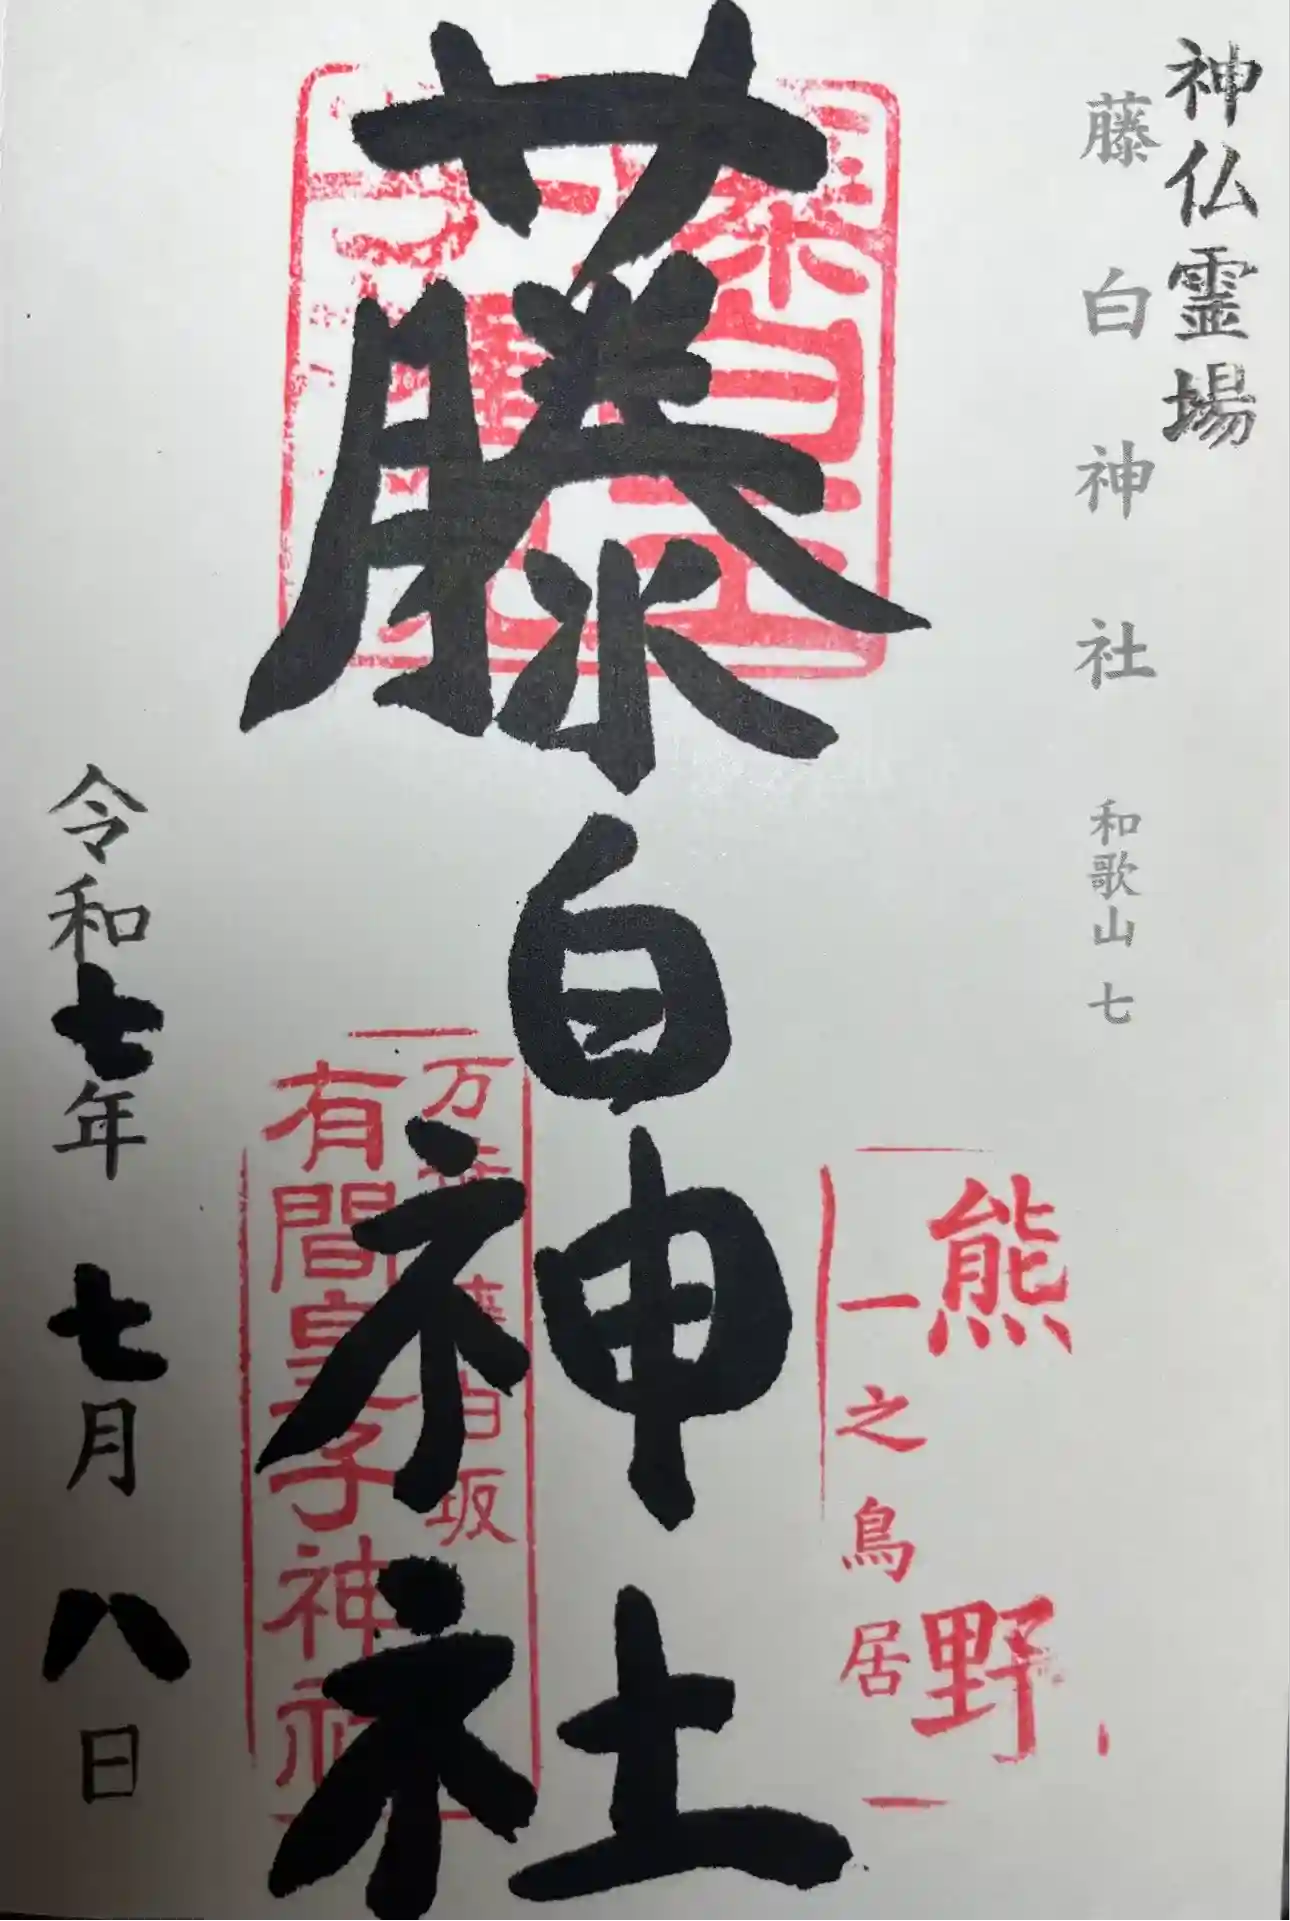 神仏霊場
藤白神社 和歌山 七
熊野
一之鳥居
藤白神社
藤白坂
有間皇子神社
令和七年 七月 八日